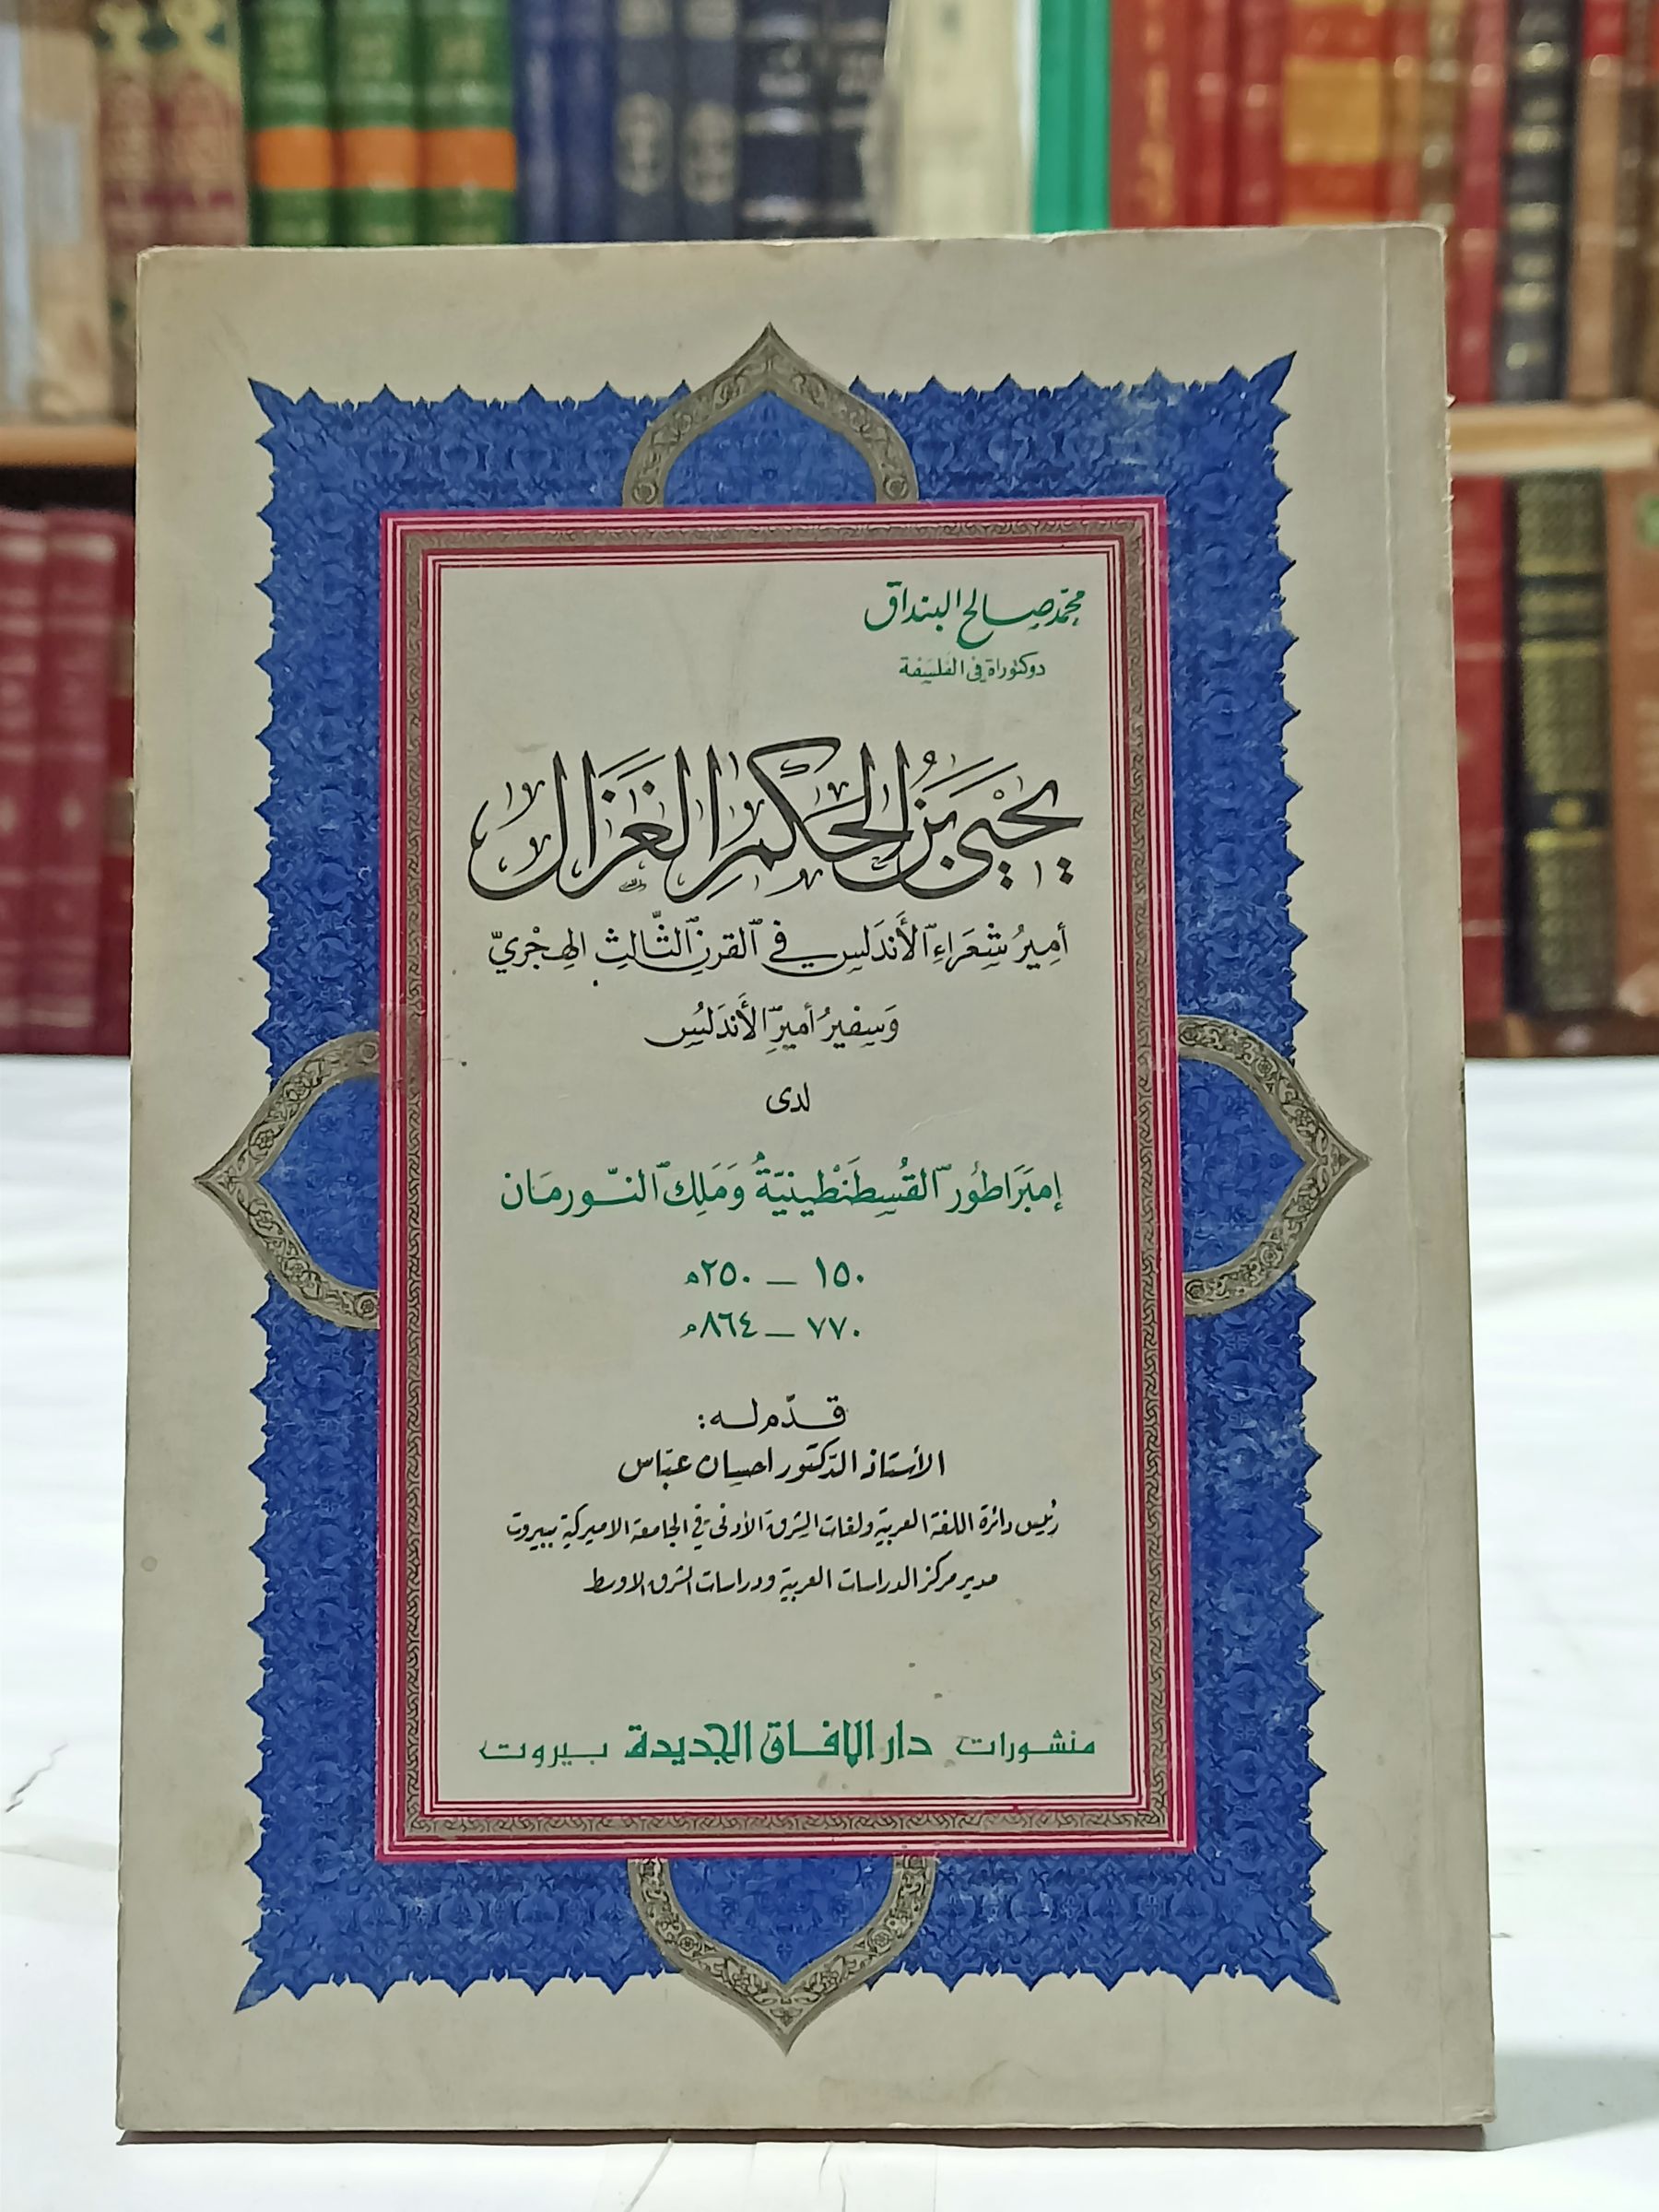 محمد صالح البنداق
دوكتوراة في الفلسفة
يَحْيَى بَنُ الحَكَمِ الغَزَال
أمِيرُ شعَرَاءِ ٱلأَندَلس في ٱلقرنِ ٱلثَّالِثِ الهِجْريّ
وَسفيرُ أميرِ ٱلأَندَلُس
لدى
إمبَرَاطُور ٱلقُسطَنْطِينيَّةُ وَمَلِك ٱلنّورمَان
١٥٠ — ٢٥٠ه
٧٧٠ — ٨٦٤م
قدّم له:
الأستاذ الدّكتور احسان عبّاس
رئيس دائرة اللغة العربية ولغات الشرق الأدنى في الجامعة الاميركية ببيروت
مدير مركز الدراسات العربية ودراسات الشرق الاوسط
منشورات دار الافاق الجديدة بيروت